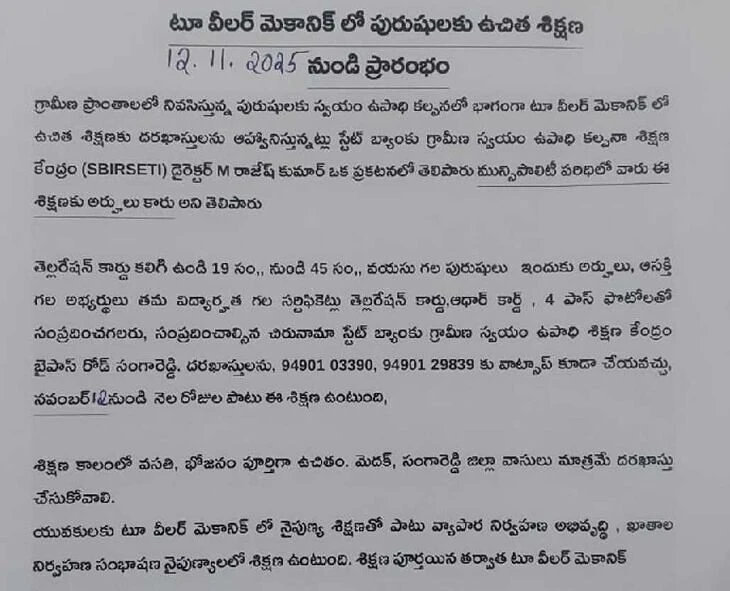 టూ వీలర్ మెకానిక్ లో పురుషులకు ఉచిత శిక్షణ
12.11.2025 నుండి ప్రారంభం
గ్రామీణ ప్రాంతాలలో నివసిస్తున్న పురుషులకు స్వయం ఉపాధి కల్పనలో భాగంగా టూ వీలర్ మెకానిక్ లో
ఉచిత శిక్షణకు దరఖాస్తులను ఆహ్వానిస్తున్నట్లు స్టేట్ బ్యాంకు గ్రామీణ స్వయం ఉపాధి కల్పనా శిక్షణ
కేంద్రం (SBIRSETI) డైరెక్టర్ M రాజేష్ కుమార్ ఒక ప్రకటనలో తెలిపారు మున్సిపాలిటీ పరిధిలో వారు ఈ
శిక్షణకు అర్హులు కారు అని తెలిపారు
తెల్లరేషన్ కార్డు కలిగి ఉండి 19 సం,, నుండి 45 సం,, వయసు గల పురుషులు ఇందుకు అర్హులు, ఆసక్తి
గల అభ్యర్థులు తమ విద్యార్హత గల సర్టిఫికెట్లు తెల్లరేషన్ కార్డు,ఆధార్ కార్డ్ , 4 పాస్ ఫొటోలతో
సంప్రదించగలరు, సంప్రదించాల్సిన చిరునామా స్టేట్ బ్యాంకు గ్రామీణ స్వయం ఉపాధి శిక్షణ కేంద్రం
బైపాస్ రోడ్ సంగారెడ్డి. దరఖాస్తులను, 94901 03390, 94901 29839 కు వాట్సాప్ కూడా చేయవచ్చు,
నవంబర్12నుండి నెల రోజుల పాటు ఈ శిక్షణ ఉంటుంది,
శిక్షణ కాలంలో వసతి, భోజనం పూర్తిగా ఉచితం. మెదక్, సంగారెడ్డి జిల్లా వాసులు మాత్రమే దరఖాస్తు
చేసుకోవాలి.
యువకులకు టూ వీలర్ మెకానిక్ లో నైపుణ్య శిక్షణతో పాటు వ్యాపార నిర్వహణ అభివృద్ధి , ఖాతాల
నిర్వహణ సంభాషణ నైపుణ్యాలలో శిక్షణ ఉంటుంది. శిక్షణ పూర్తయిన తర్వాత టూ వీలర్ మెకానిక్